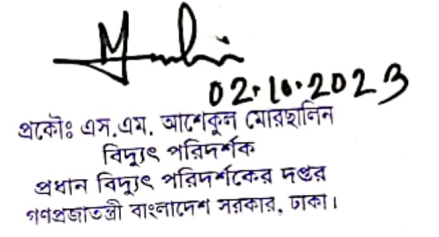 02.10.2023
প্রকৌঃ এস.এম. আশেকুল মোরছালিন
বিদ্যুৎ পরিদর্শক
প্রধান বিদ্যুৎ পরিদর্শকের দপ্তর
গণপ্রজাতন্ত্রী বাংলাদেশ সরকার, ঢাকা।